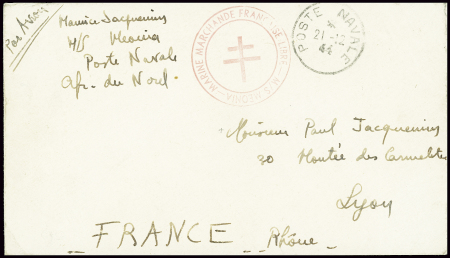 Par Avion
Maurice Jacquemins
M/S
Poste Navale
Afr. du Nord.
MARINE MARCHANDE FRANÇAISE LIBRE
POSTE NAVALE
21-12
44
Monsieur Paul Jacquemins
30 Montée des Carmélites
Lyon
FRANCE Rhône